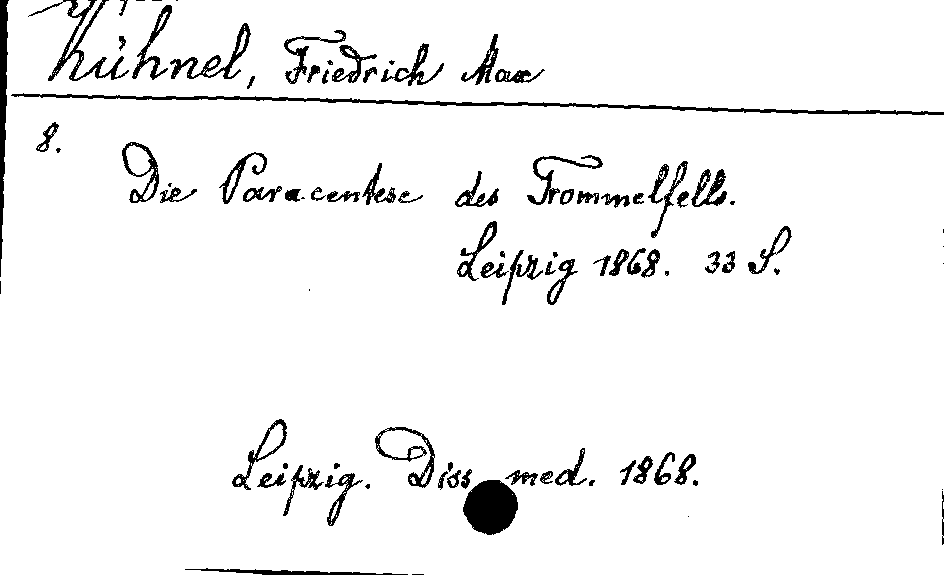 Kühnel, Friedrich Max
8.
Die Paracentese des Trommelfells.
Leipzig 1868. 33 S.
Leipzig. Diss med. 1868.